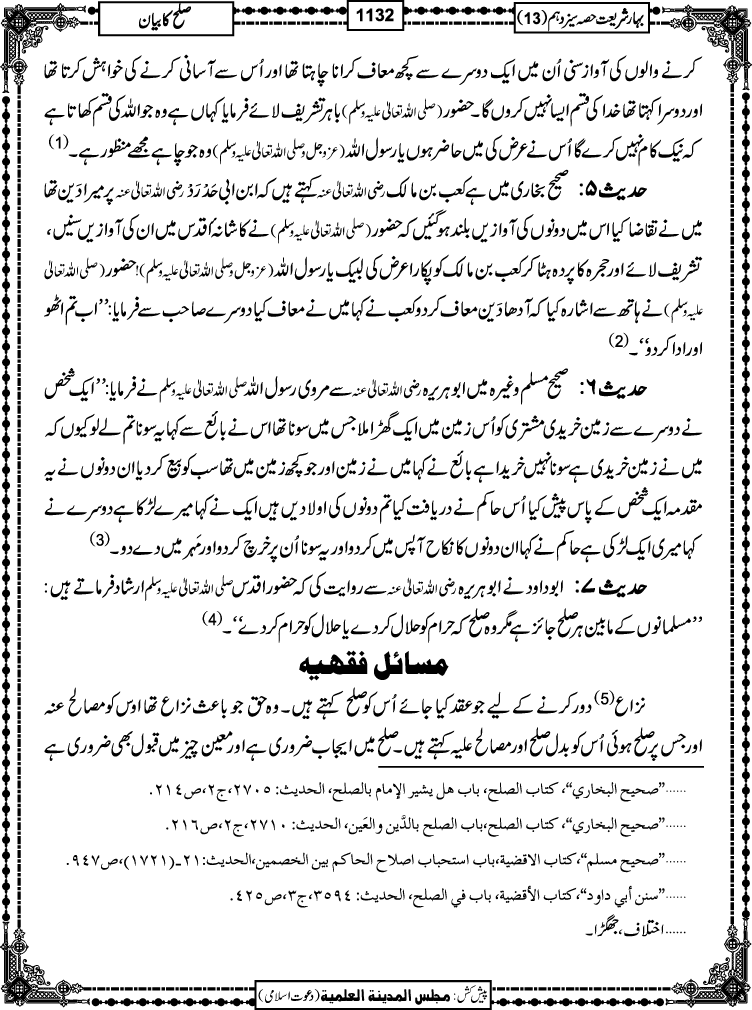 بہار شریعت حصہ سیزدہم (13)
1132
صلح کا بیان
کرنے والوں کی آواز سنی اُن میں ایک دوسرے سے کچھ معاف کرانا چاہتا تھا اور اُس سے آسانی کرنے کی خواہش کرتا تھا
اور دوسرا کہتا تھا خدا کی قسم ایسا نہیں کروں گا۔ حضور (صلی اللہ تعالیٰ علیہ وسلم) باہر تشریف لائے فرمایا کہاں ہے وہ جو اللہ کی قسم کھاتا ہے
کہ نیک کام نہیں کرے گا اُس نے عرض کی میں حاضر ہوں یا رسول اللہ (عزوجل وصلی اللہ تعالیٰ علیہ وسلم) وہ جو چاہے مجھے منظور ہے۔(1)
حدیث ۵: صحیح بخاری میں ہے کعب بن مالک رضی اللہ تعالیٰ عنہ کہتے ہیں کہ ابن ابی حَدْرَدْ رضی اللہ تعالیٰ عنہ پر میرا دَین تھا
میں نے تقاضا کیا اس میں دونوں کی آوازیں بلند ہوگئیں کہ حضور (صلی اللہ تعالیٰ علیہ وسلم) نے کاشانۂ اقدس میں ان کی آوازیں سنیں،
تشریف لائے اور حجرہ کا پردہ ہٹا کر کعب بن مالک کو پکارا عرض کی لبیک یا رسول اللہ (عزوجل وصلی اللہ تعالیٰ علیہ وسلم)! حضور (صلی اللہ تعالیٰ
علیہ وسلم) نے ہاتھ سے اشارہ کیا کہ آدھا دَین معاف کر دو کعب نے کہا میں نے معاف کیا دوسرے صاحب سے فرمایا: ’’اب تم اٹھو
اور ادا کردو‘‘۔(2)
حدیث ۶: صحیح مسلم وغیرہ میں ابوہریرہ رضی اللہ تعالیٰ عنہ سے مروی رسول اللہ صلی اللہ تعالیٰ علیہ وسلم نے فرمایا: ’’ایک شخص
نے دوسرے سے زمین خریدی مشتری کو اُس زمین میں ایک گھڑا ملا جس میں سونا تھا اس نے بائع سے کہا یہ سونا تم لے لو کیوں کہ
میں نے زمین خریدی ہے سونا نہیں خریدا ہے بائع نے کہا میں نے زمین اور جو کچھ زمین میں تھا سب کو بیع کر دیا ان دونوں نے یہ
مقدمہ ایک شخص کے پاس پیش کیا اُس حاکم نے دریافت کیا تم دونوں کی اولادیں ہیں ایک نے کہا میرے لڑکا ہے دوسرے نے
کہا میری ایک لڑکی ہے حاکم نے کہا ان دونوں کا نکاح آپس میں کردو اور یہ سونا اُن پر خرچ کردو اور مَہر میں دے دو۔(3)
حدیث ۷: ابوداود نے ابوہریرہ رضی اللہ تعالیٰ عنہ سے روایت کی کہ حضور اقدس صلی اللہ تعالیٰ علیہ وسلم ارشاد فرماتے ہیں:
’’مسلمانوں کے مابین ہر صلح جائز ہے مگر وہ صلح کہ حرام کو حلال کردے یا حلال کو حرام کردے‘‘۔(4)
مسائل فقهيه
نزاع(5) دور کرنے کے لیے جو عقد کیا جائے اُس کو صلح کہتے ہیں۔ وہ حق جو باعث نزاع تھا اوس کو مصالح عنہ
اور جس پر صلح ہوئی اُس کو بدل صلح اور مصالح علیہ کہتے ہیں۔ صلح میں ایجاب ضروری ہے اور معین چیز میں قبول بھی ضروری ہے
......”صحيح البخاري“، كتاب الصلح، باب هل يشير الإمام بالصلح، الحديث: ٢٧٠٥، ج٢، ص٢١٤.
......”صحيح البخاري“، كتاب الصلح، باب الصلح بالدَّين والعَين، الحديث: ٢٧١٠، ج٢، ص٢١٦.
......”صحيح مسلم“، كتاب الاقضية، باب استحباب اصلاح الحاكم بين الخصمين، الحديث: ٢١ـ(١٧٢١)، ص٩٤٧.
......”سنن أبي داود“، كتاب الأقضية، باب في الصلح، الحديث: ٣٥٩٤، ج٣، ص٤٢٥.
......اختلاف، جھگڑا۔
پیش کش: مجلس المدينة العلمية (دعوت اسلامی)